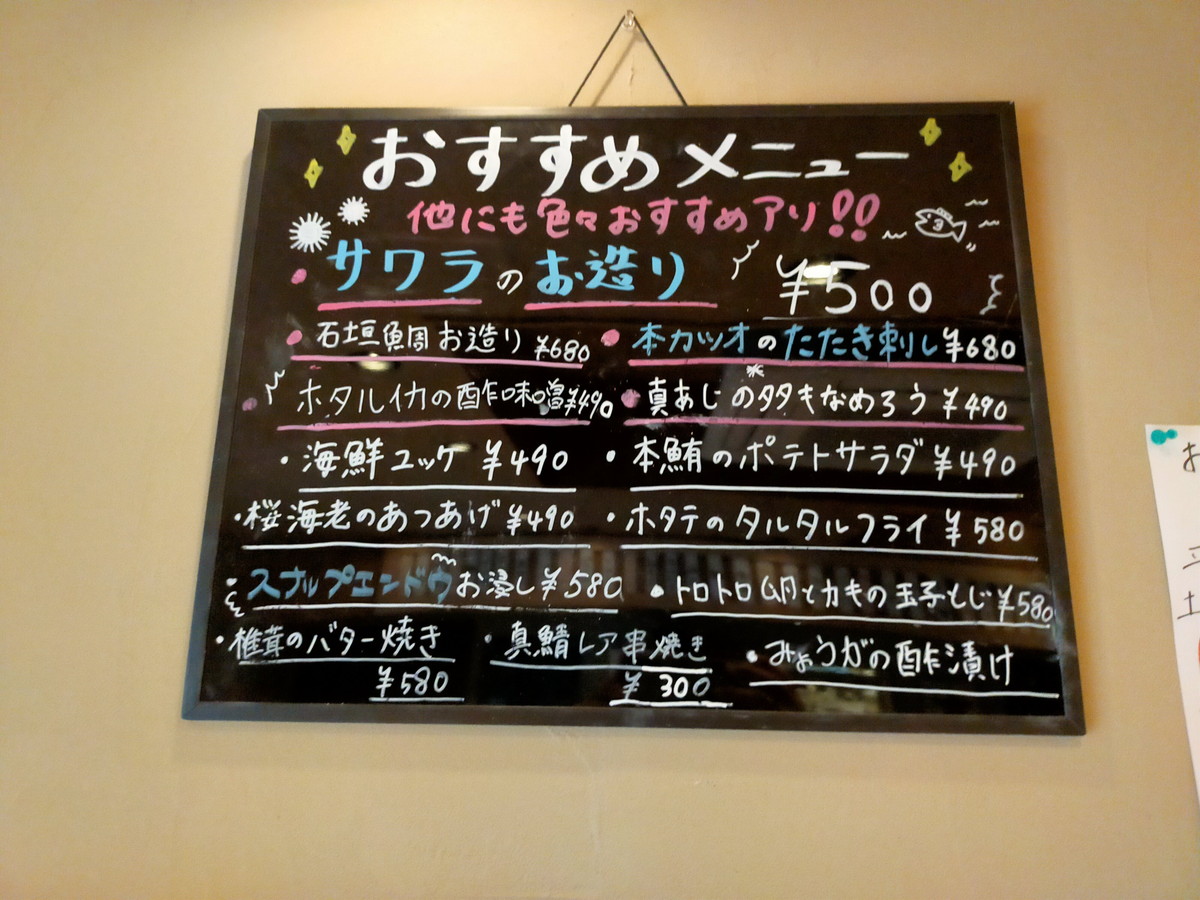 おすすめメニュー
他にも色々おすすめアリ!!
・サワラのお造り ¥500
・石垣鯛お造り ¥680
・本カツオのたたき刺し ¥680
・ホタルイカの酢味噌 ¥490
・真あじのタタキなめろう ¥490
・海鮮ユッケ ¥490
・本鮪のポテトサラダ ¥490
・桜海老のあつあげ ¥490
・ホタテのタルタルフライ ¥580
・スナップエンドウお浸し ¥580
・トロトロ卵とカキの玉子とじ ¥580
・椎茸のバター焼き
¥580
・真鯖レア串焼き
¥300
・みょうがの酢漬け